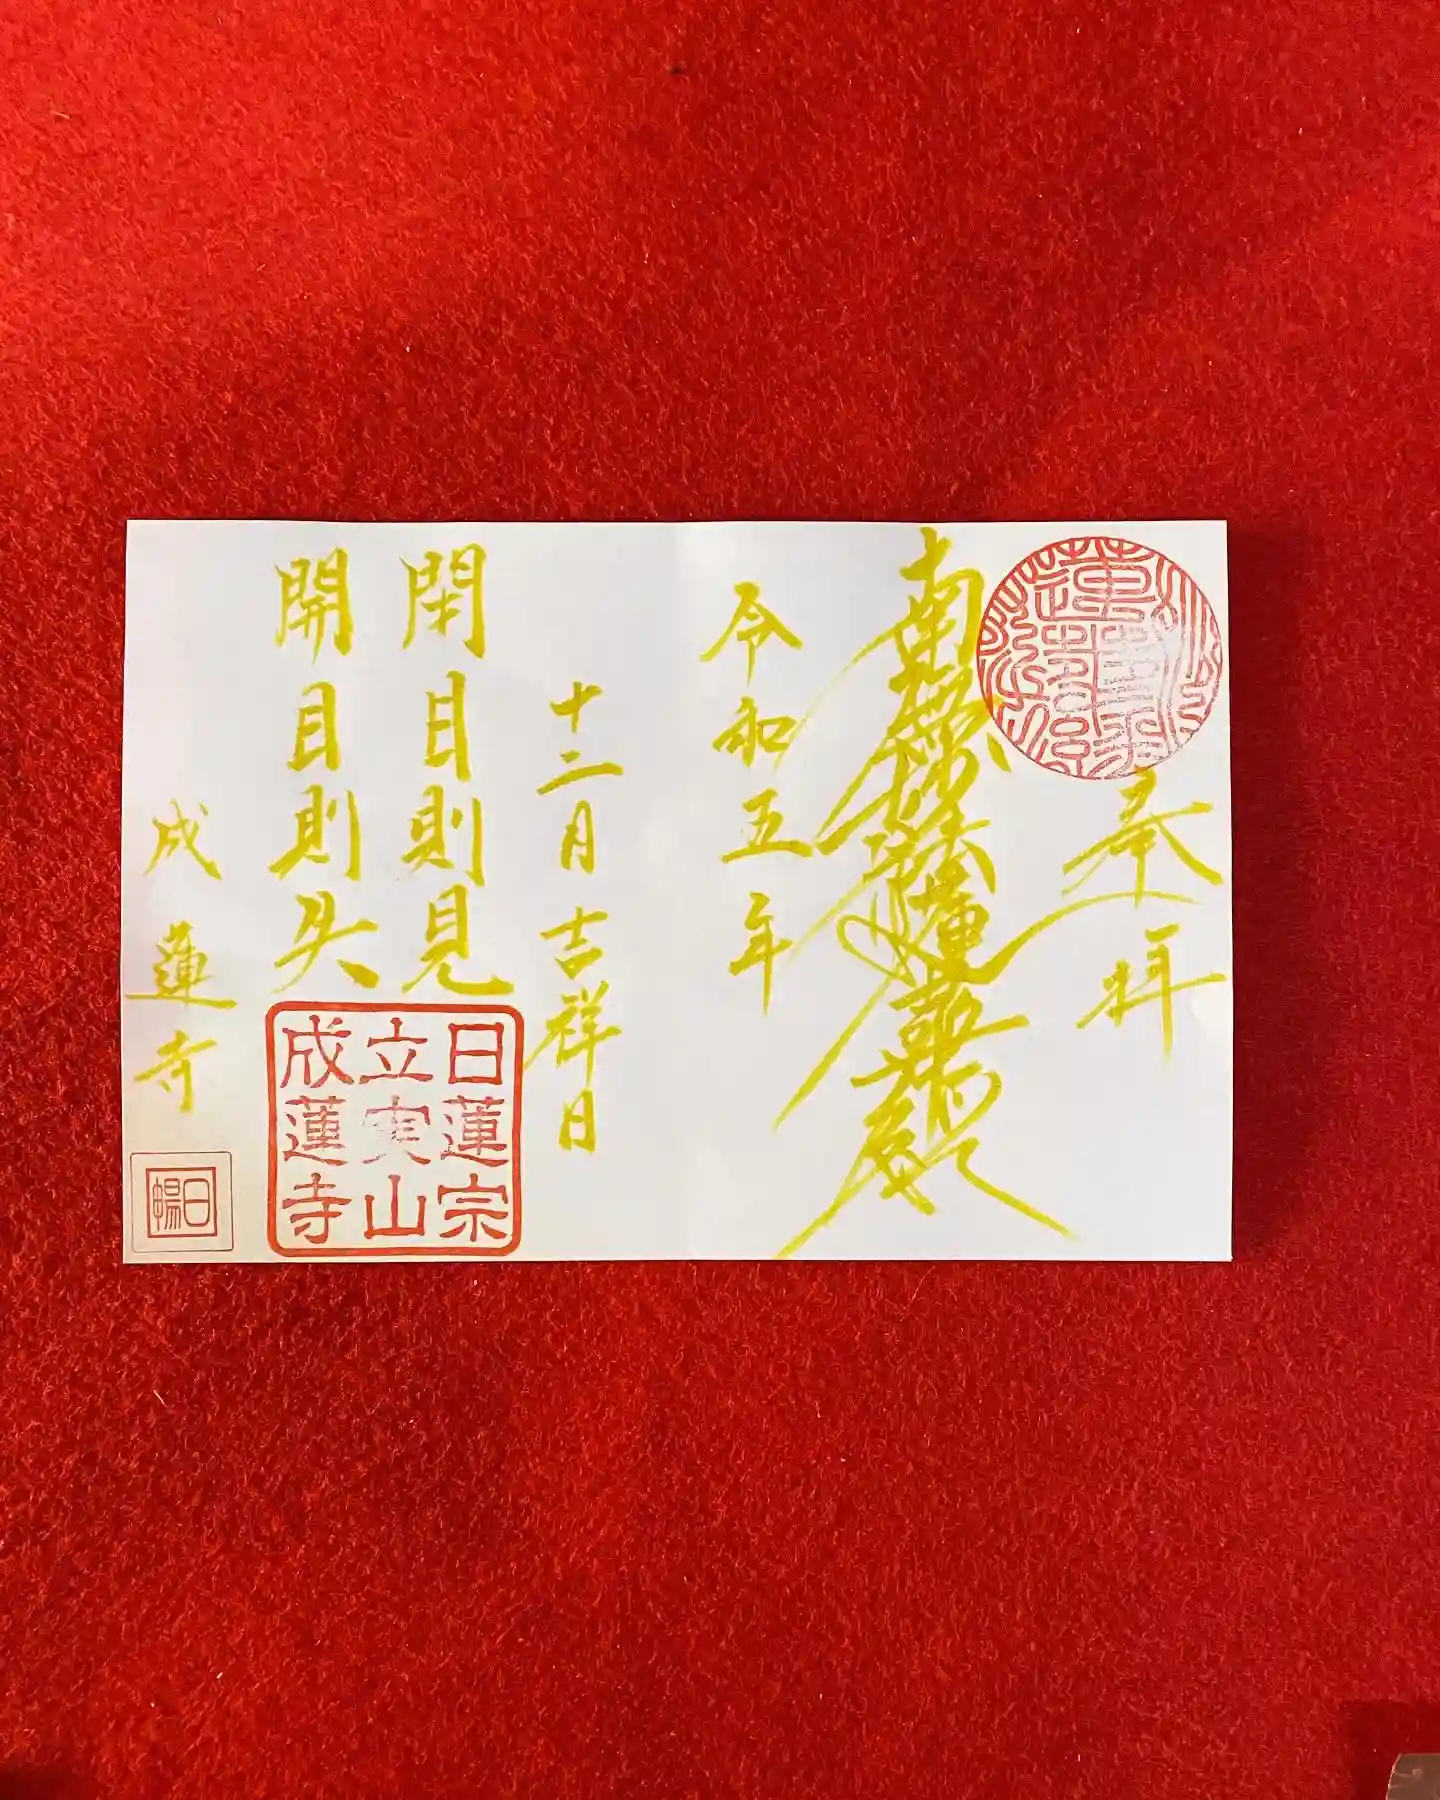 奉拝
南無妙法蓮華経
令和五年
十二月吉祥日
閉目則見
開目則失
日蓮宗
立実山
成蓮寺
成蓮寺